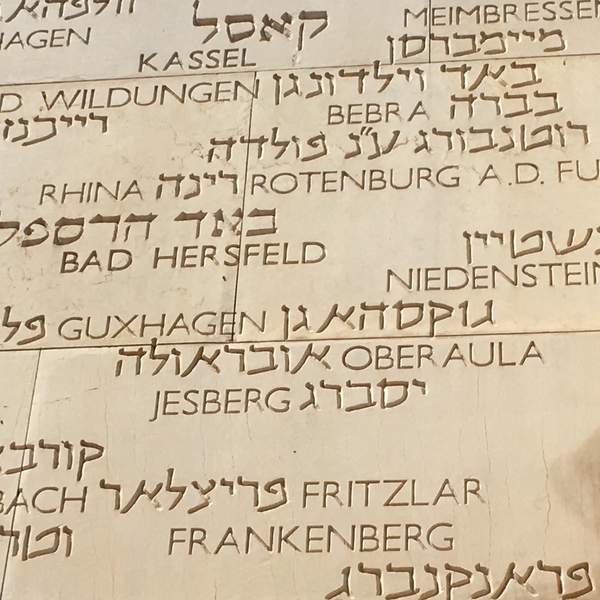 קאסל MEIMBRESSEN
HAGEN KASSEL מיימברסן
D WILDUNGEN באד וילדונגן
BEBRA בברה
רוטנבורג ע"נ פולדה
RHINA רינה ROTENBURG A.D. FU
באד הרספל
BAD HERSFELD שטיין
NIEDENSTEIN
GUXHAGEN גוקסהאגן
אובראולה OBERAULA
JESBERG יסברג
קורב
BACH פריצלאר FRITZLAR
FRANKENBERG
פראנקנברג